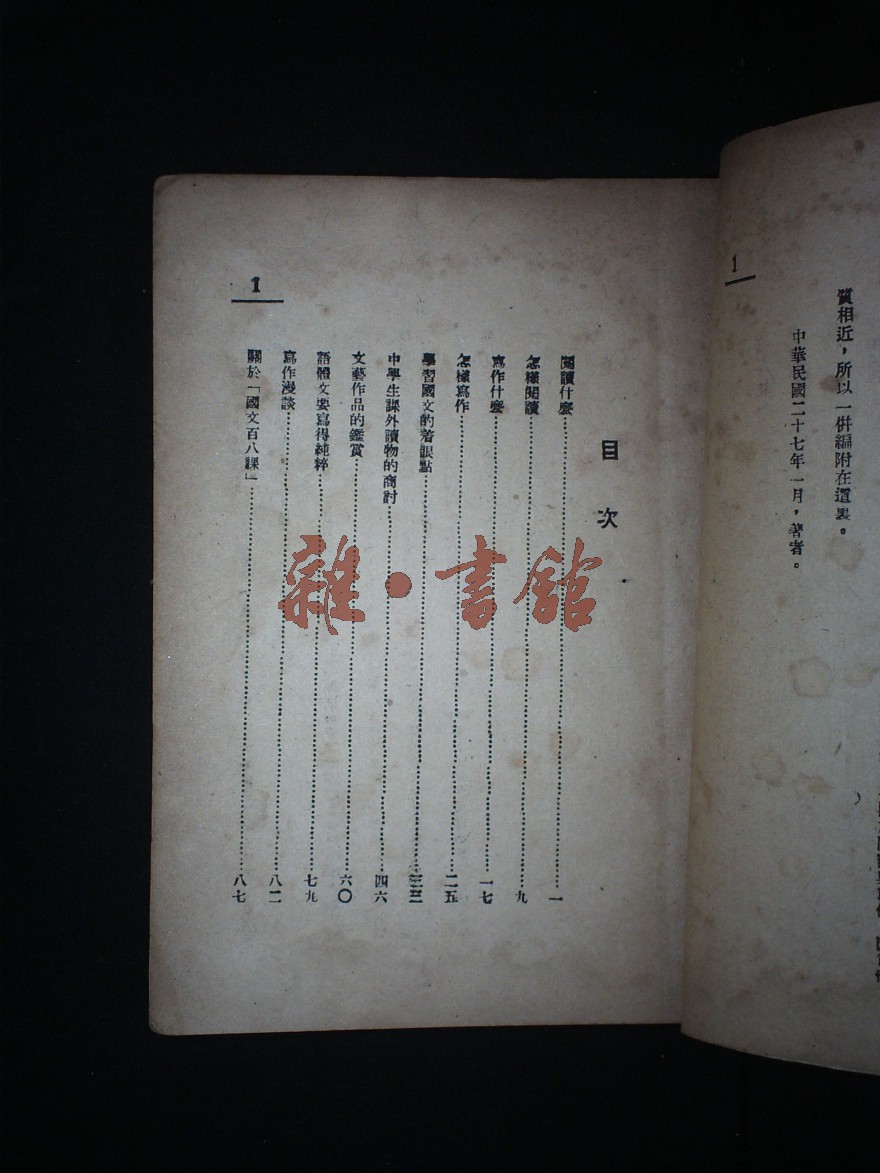 質相近，所以一併編附在這裏。
中華民國二十七年一月，著者。
1
目次
閱讀什麼……一
怎樣閱讀……九
寫作什麼……一七
怎樣寫作……二五
學習國文的着眼點……三三
中學生課外讀物的商討……四六
文藝作品的鑑賞……六〇
語體文要寫得純粹……七九
寫作漫談……八二
關於「國文百八課」……八七
1
雜·書館